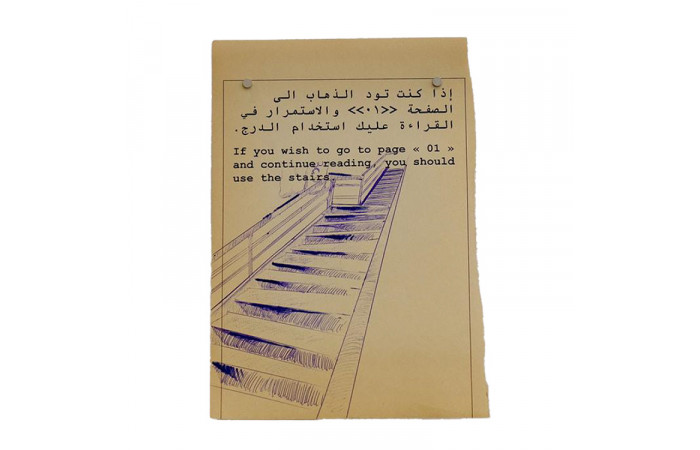 إذا كنت تود الذهاب الى
الصفحة <<٠١>> والاستمرار في
القراءة عليك استخدام الدرج.
If you wish to go to page « 01 »
and continue reading, you should
use the stairs.